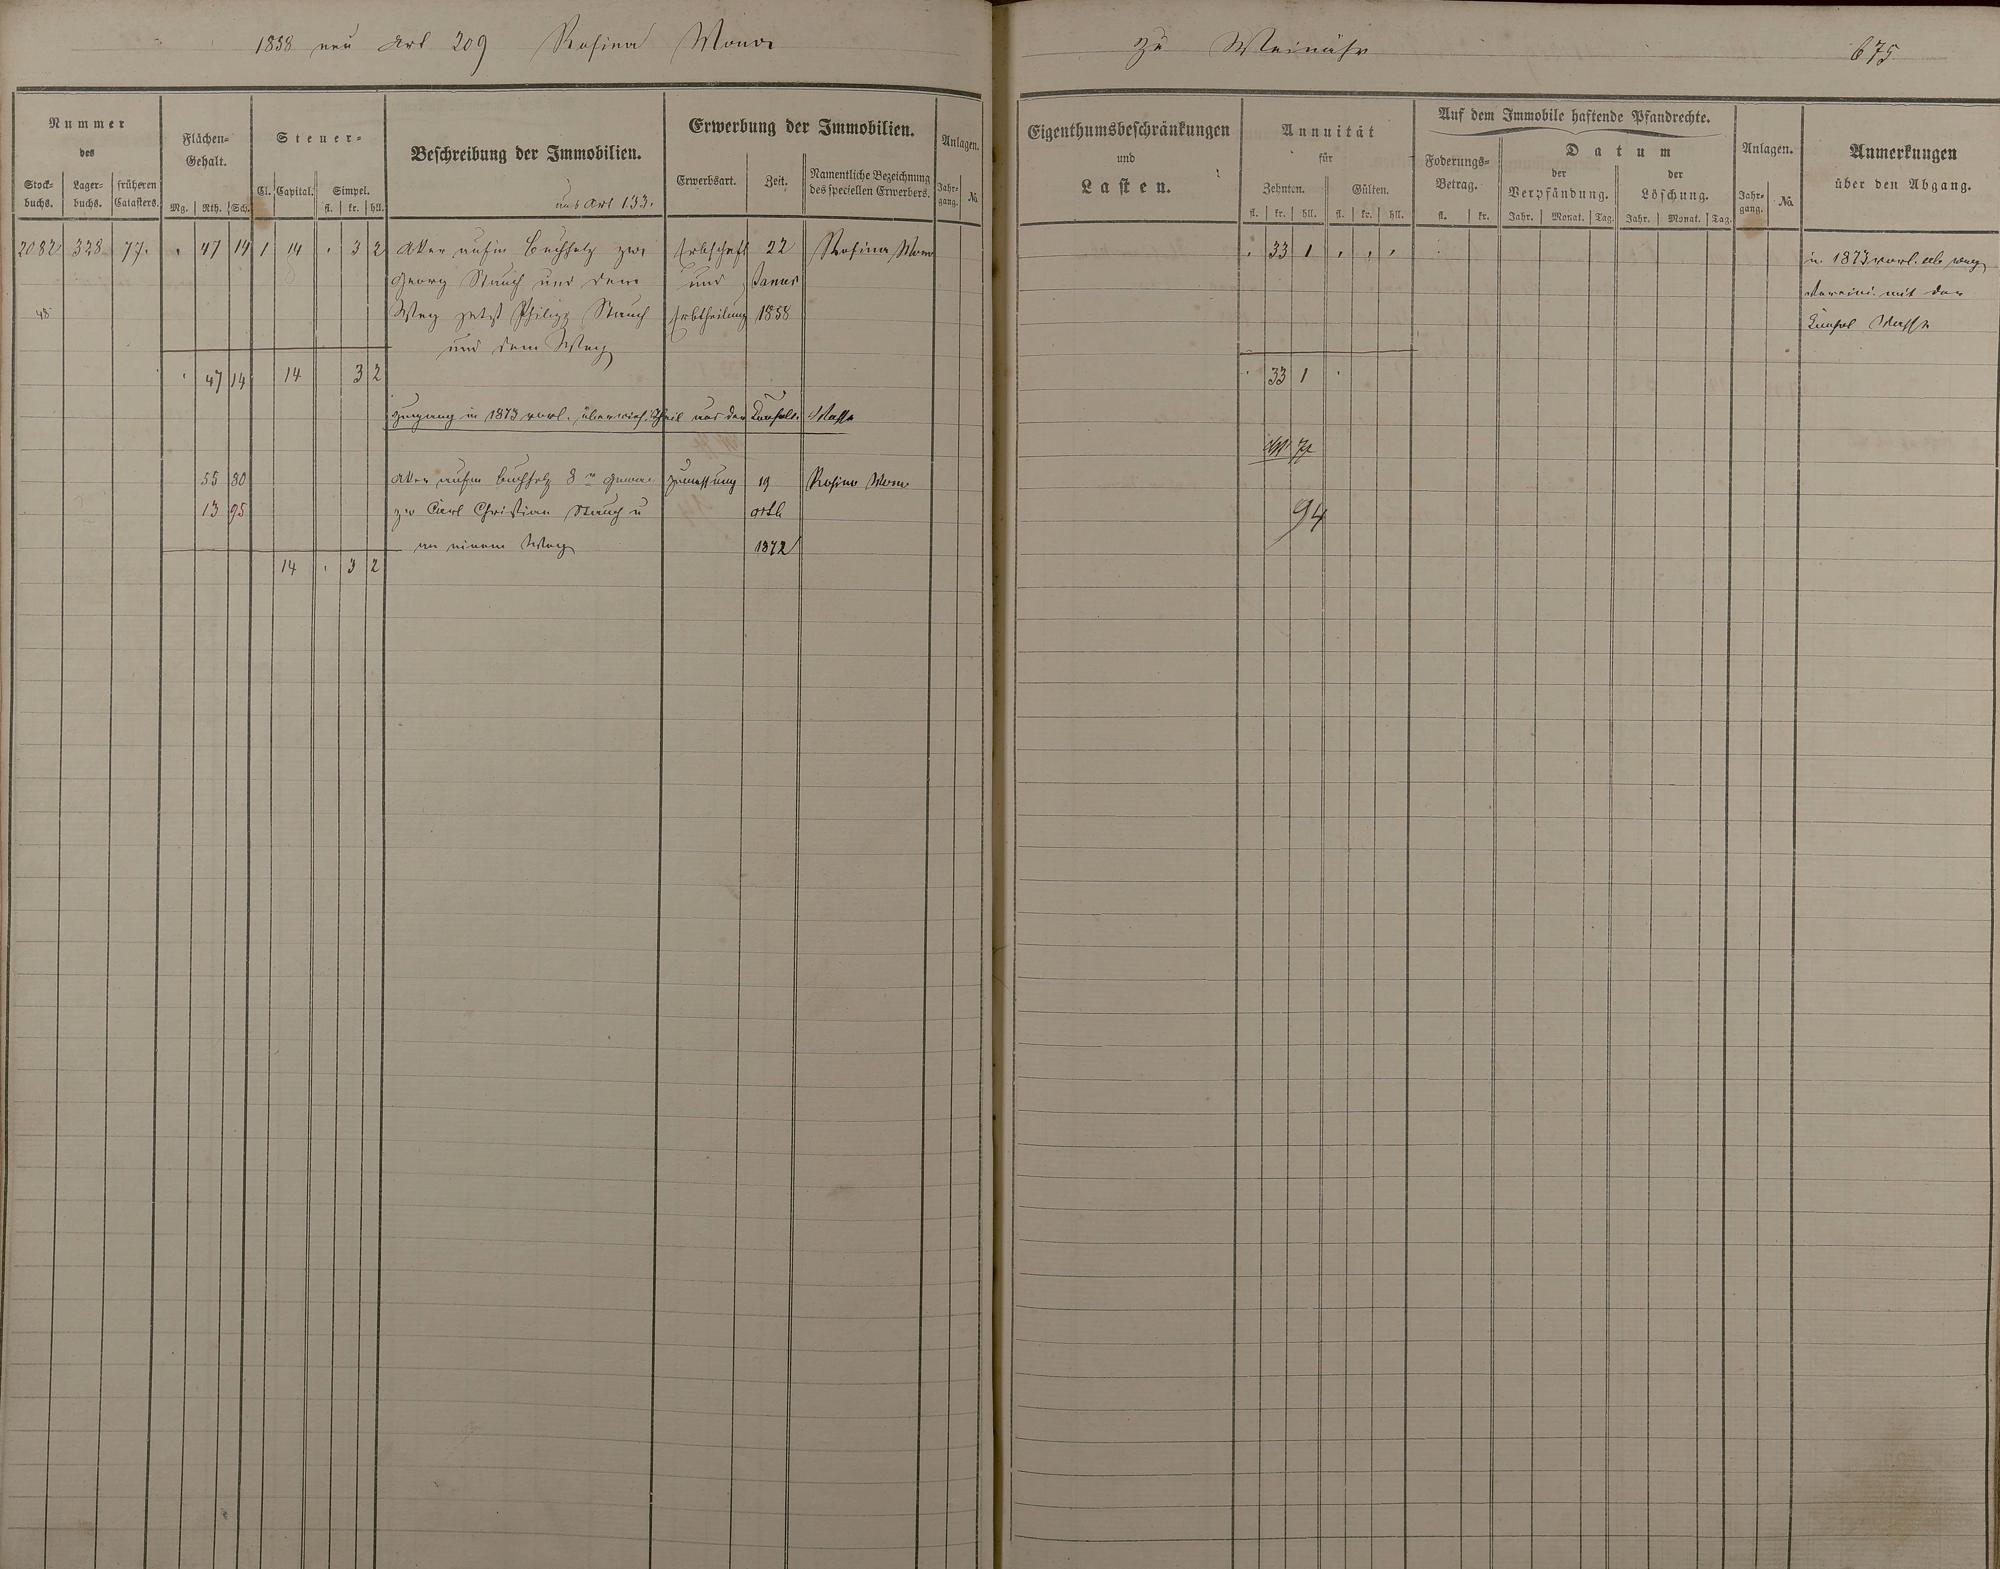 1858 neu Art 209 Rosina
zu Weinähr 675
Nummer
des
Stock-
buchs.
Lager-
buchs.
früheren
Catasters.
Flächen-
Gehalt.
Mg. Rth. Sch.
Steuer-
Cl. Capital. Simpel.
fl. kr. hll.
Beschreibung der Immobilien.
aus Art 133.
Erwerbung der Immobilien.
Erwerbsart. Zeit. Namentliche Bezeichnung
des speciellen Erwerbers.
Anlagen.
Jahr-
gang. No.
Eigenthumsbeschränkungen
und
Lasten.
Annuität
für
Zehnten. Gülten.
fl. kr. hll. fl. kr. hll.
Auf dem Immobile haftende Pfandrechte.
Foderungs-
Betrag.
fl. kr.
Datum
der
Verpfändung.
der
Löschung.
Jahr. Monat. Tag. Jahr. Monat. Tag.
Anlagen.
Jahr-
gang. No.
Anmerkungen
über den Abgang.
2082 328 77. 47 14 1 14 3 2 Acker aufm Buchholz zw. Erbschaft 22 Rosina 33 1
Georg Stauch und dem und Januar
48 Weg jetzt Philipp Stauch Erbtheilung 1858
und dem Weg
in 1873
mit der
Consol Masse
47 14 14 3 2 33 1
Zugang in 1873 Theil aus der Consol. Masse
55 80 Acker aufm Buchholz 8 Zumessung 19 Rosina
13 95 zw Carl Christian Stauch u 94
an einem Weg 1872
14 3 2